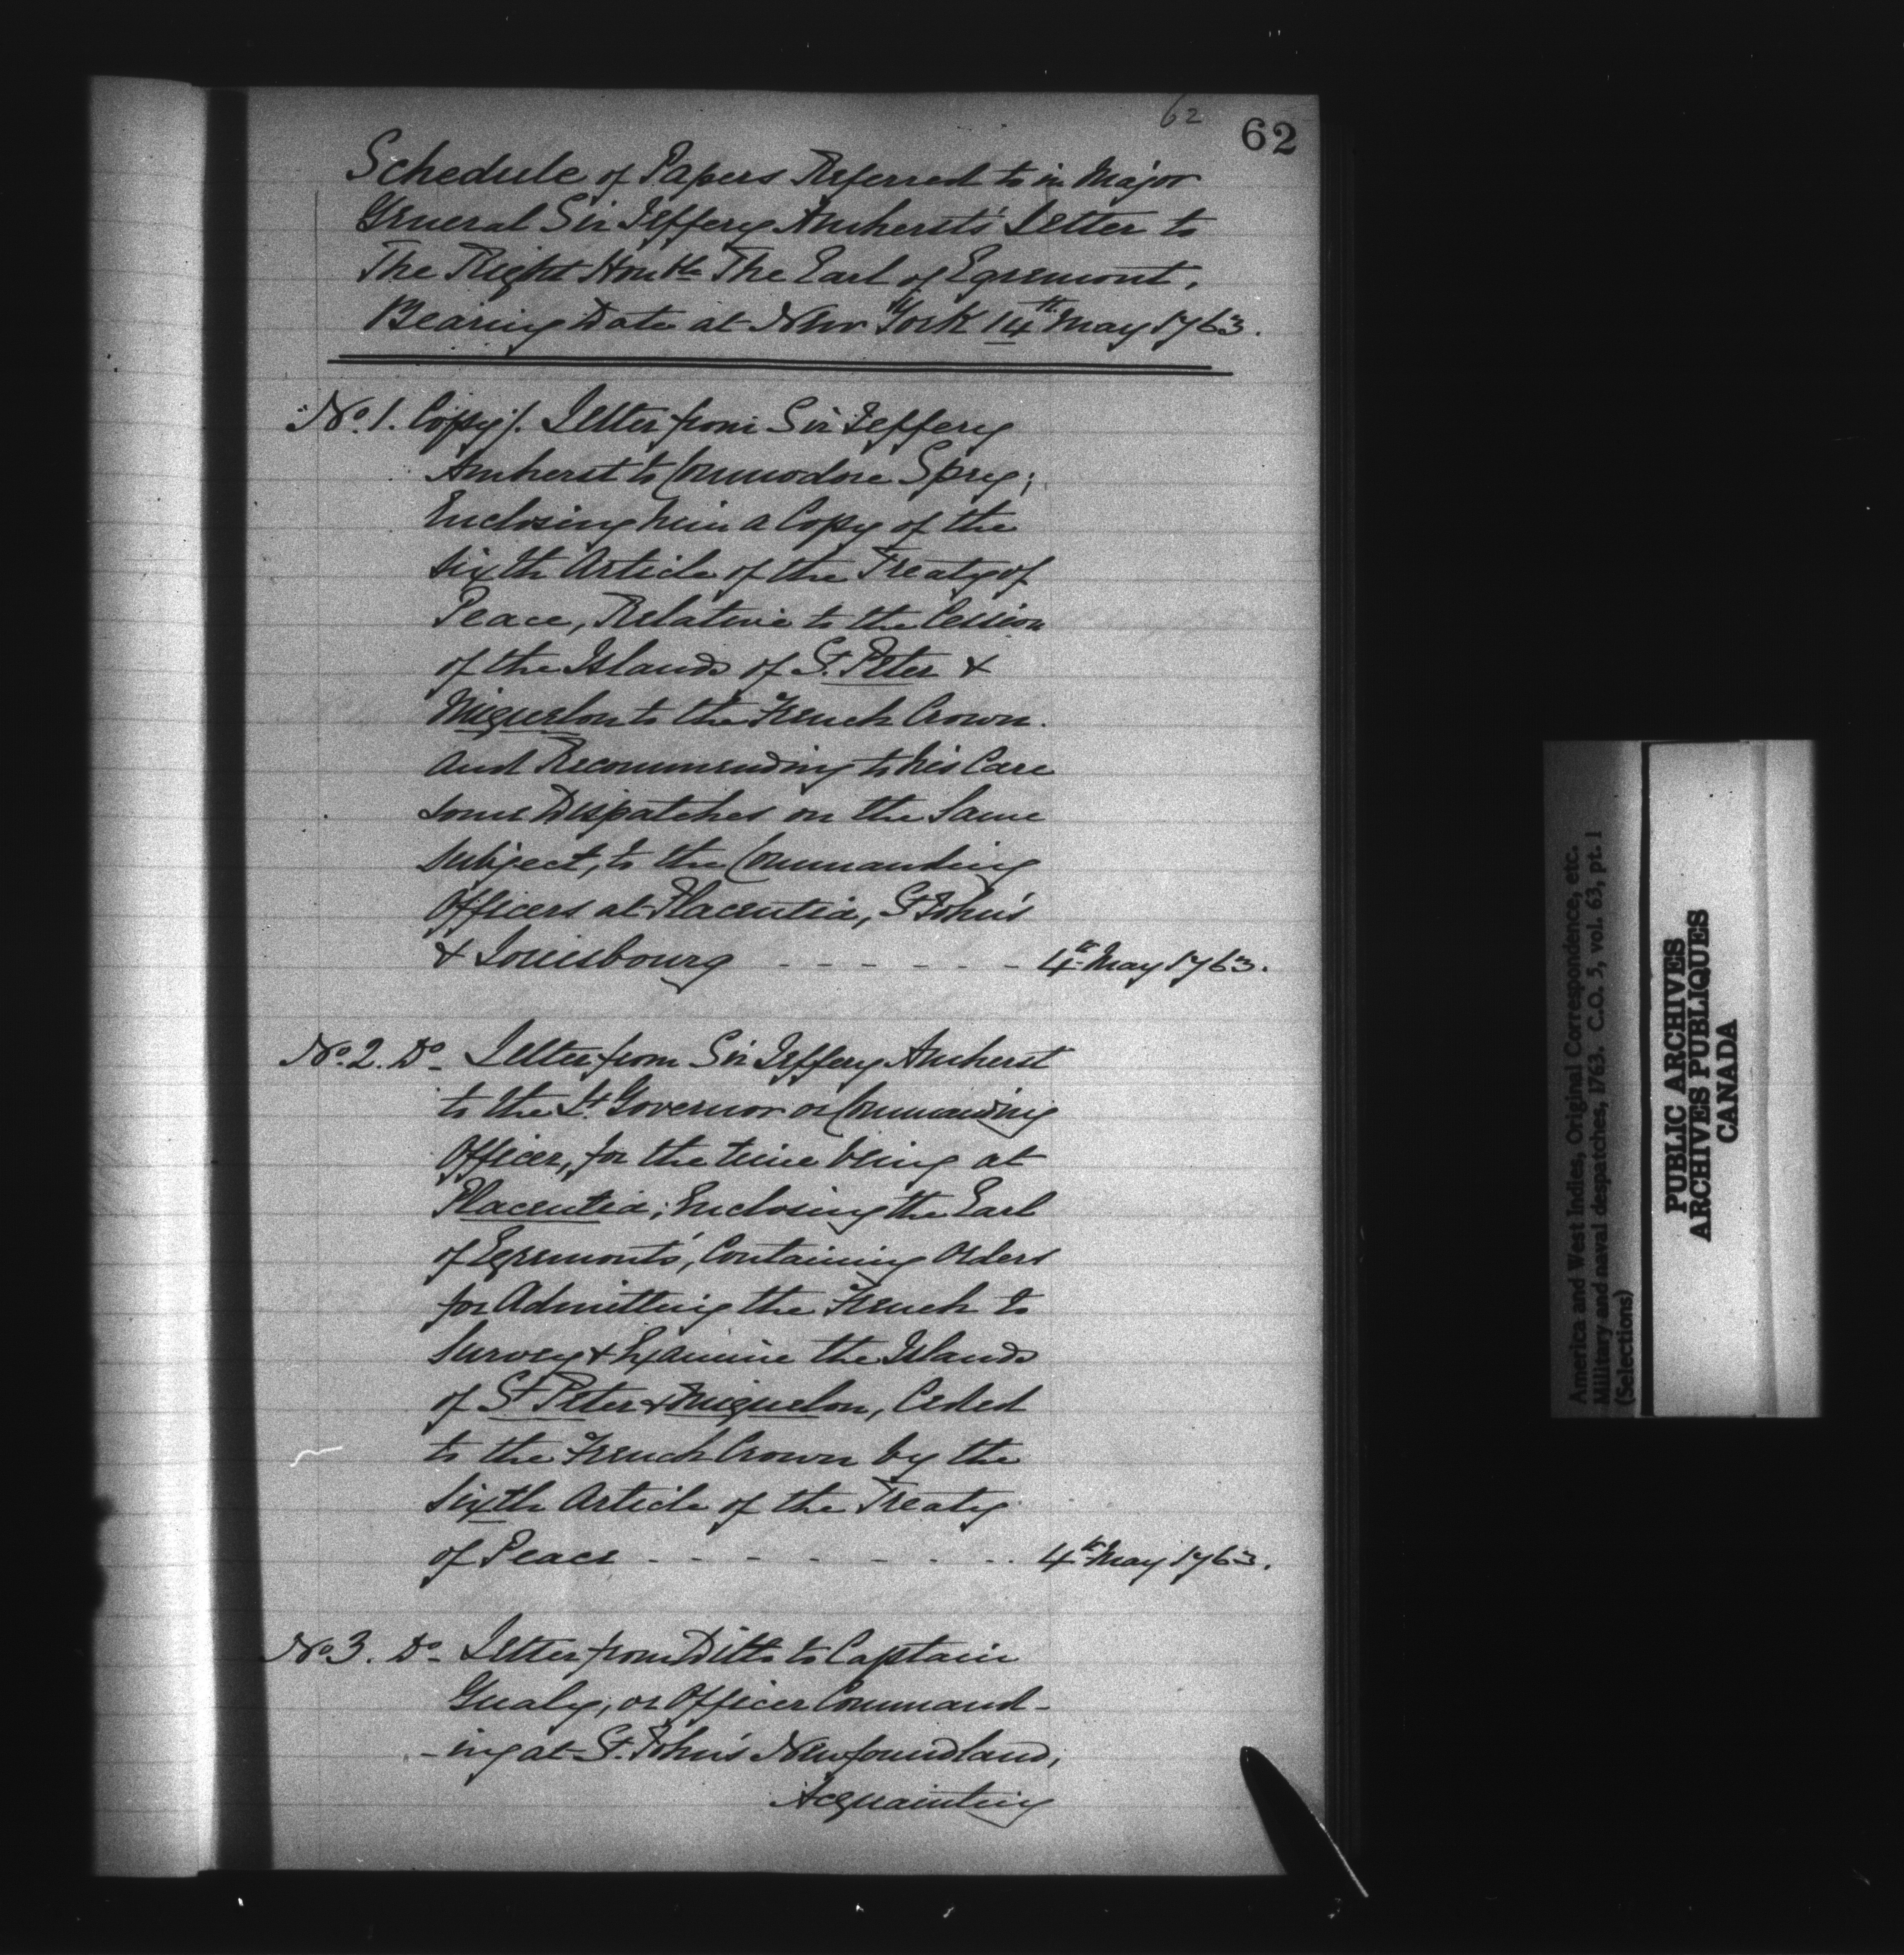 62
62
Schedule of Papers Referred to in Major
General Sir Jeffery Amherst's Letter to
The Right Honble The Earl of Egremont,
Bearing Date at New York 14th May 1763.
No. 1. Copy/. Letter from Sir Jeffery
Amherst to Commodore Spry;
Enclosing him a Copy of the
Sixth Article of the Treaty of
Peace, Relative to the Cession
of the Islands of St. Peter &
Miquelon to the French Crown.
and Recommending to his Care
some Dispatches on the Same
Subject, to the Commanding
Officers at Placentia, St John's
& Louisbourg - - - - - - - 4th May 1763.
No. 2. Do- Letter from Sir Jeffery Amherst
to the Lt Governor or Commanding
Officer, for the time being at
Placentia; Enclosing the Earl
of Egremont's, Containing Orders
for Admitting the French to
Survey & Examine the Islands
of St Peter & Miquelon, Ceded
to the French Crown by the
Sixth Article of the Treaty
of Peace - - - - - - - - - - 4th May 1763.
No 3. Do- Letter from Ditto to Captain
Gualy, or Officer Command-
-ing at St. John's Newfoundland,
Acquainting
America and West Indies, Original Correspondence, etc.
Military and naval despatches, 1763. C.O. 5, vol. 63, pt. 1
(Selections)
PUBLIC ARCHIVES
ARCHIVES PUBLIQUES
CANADA